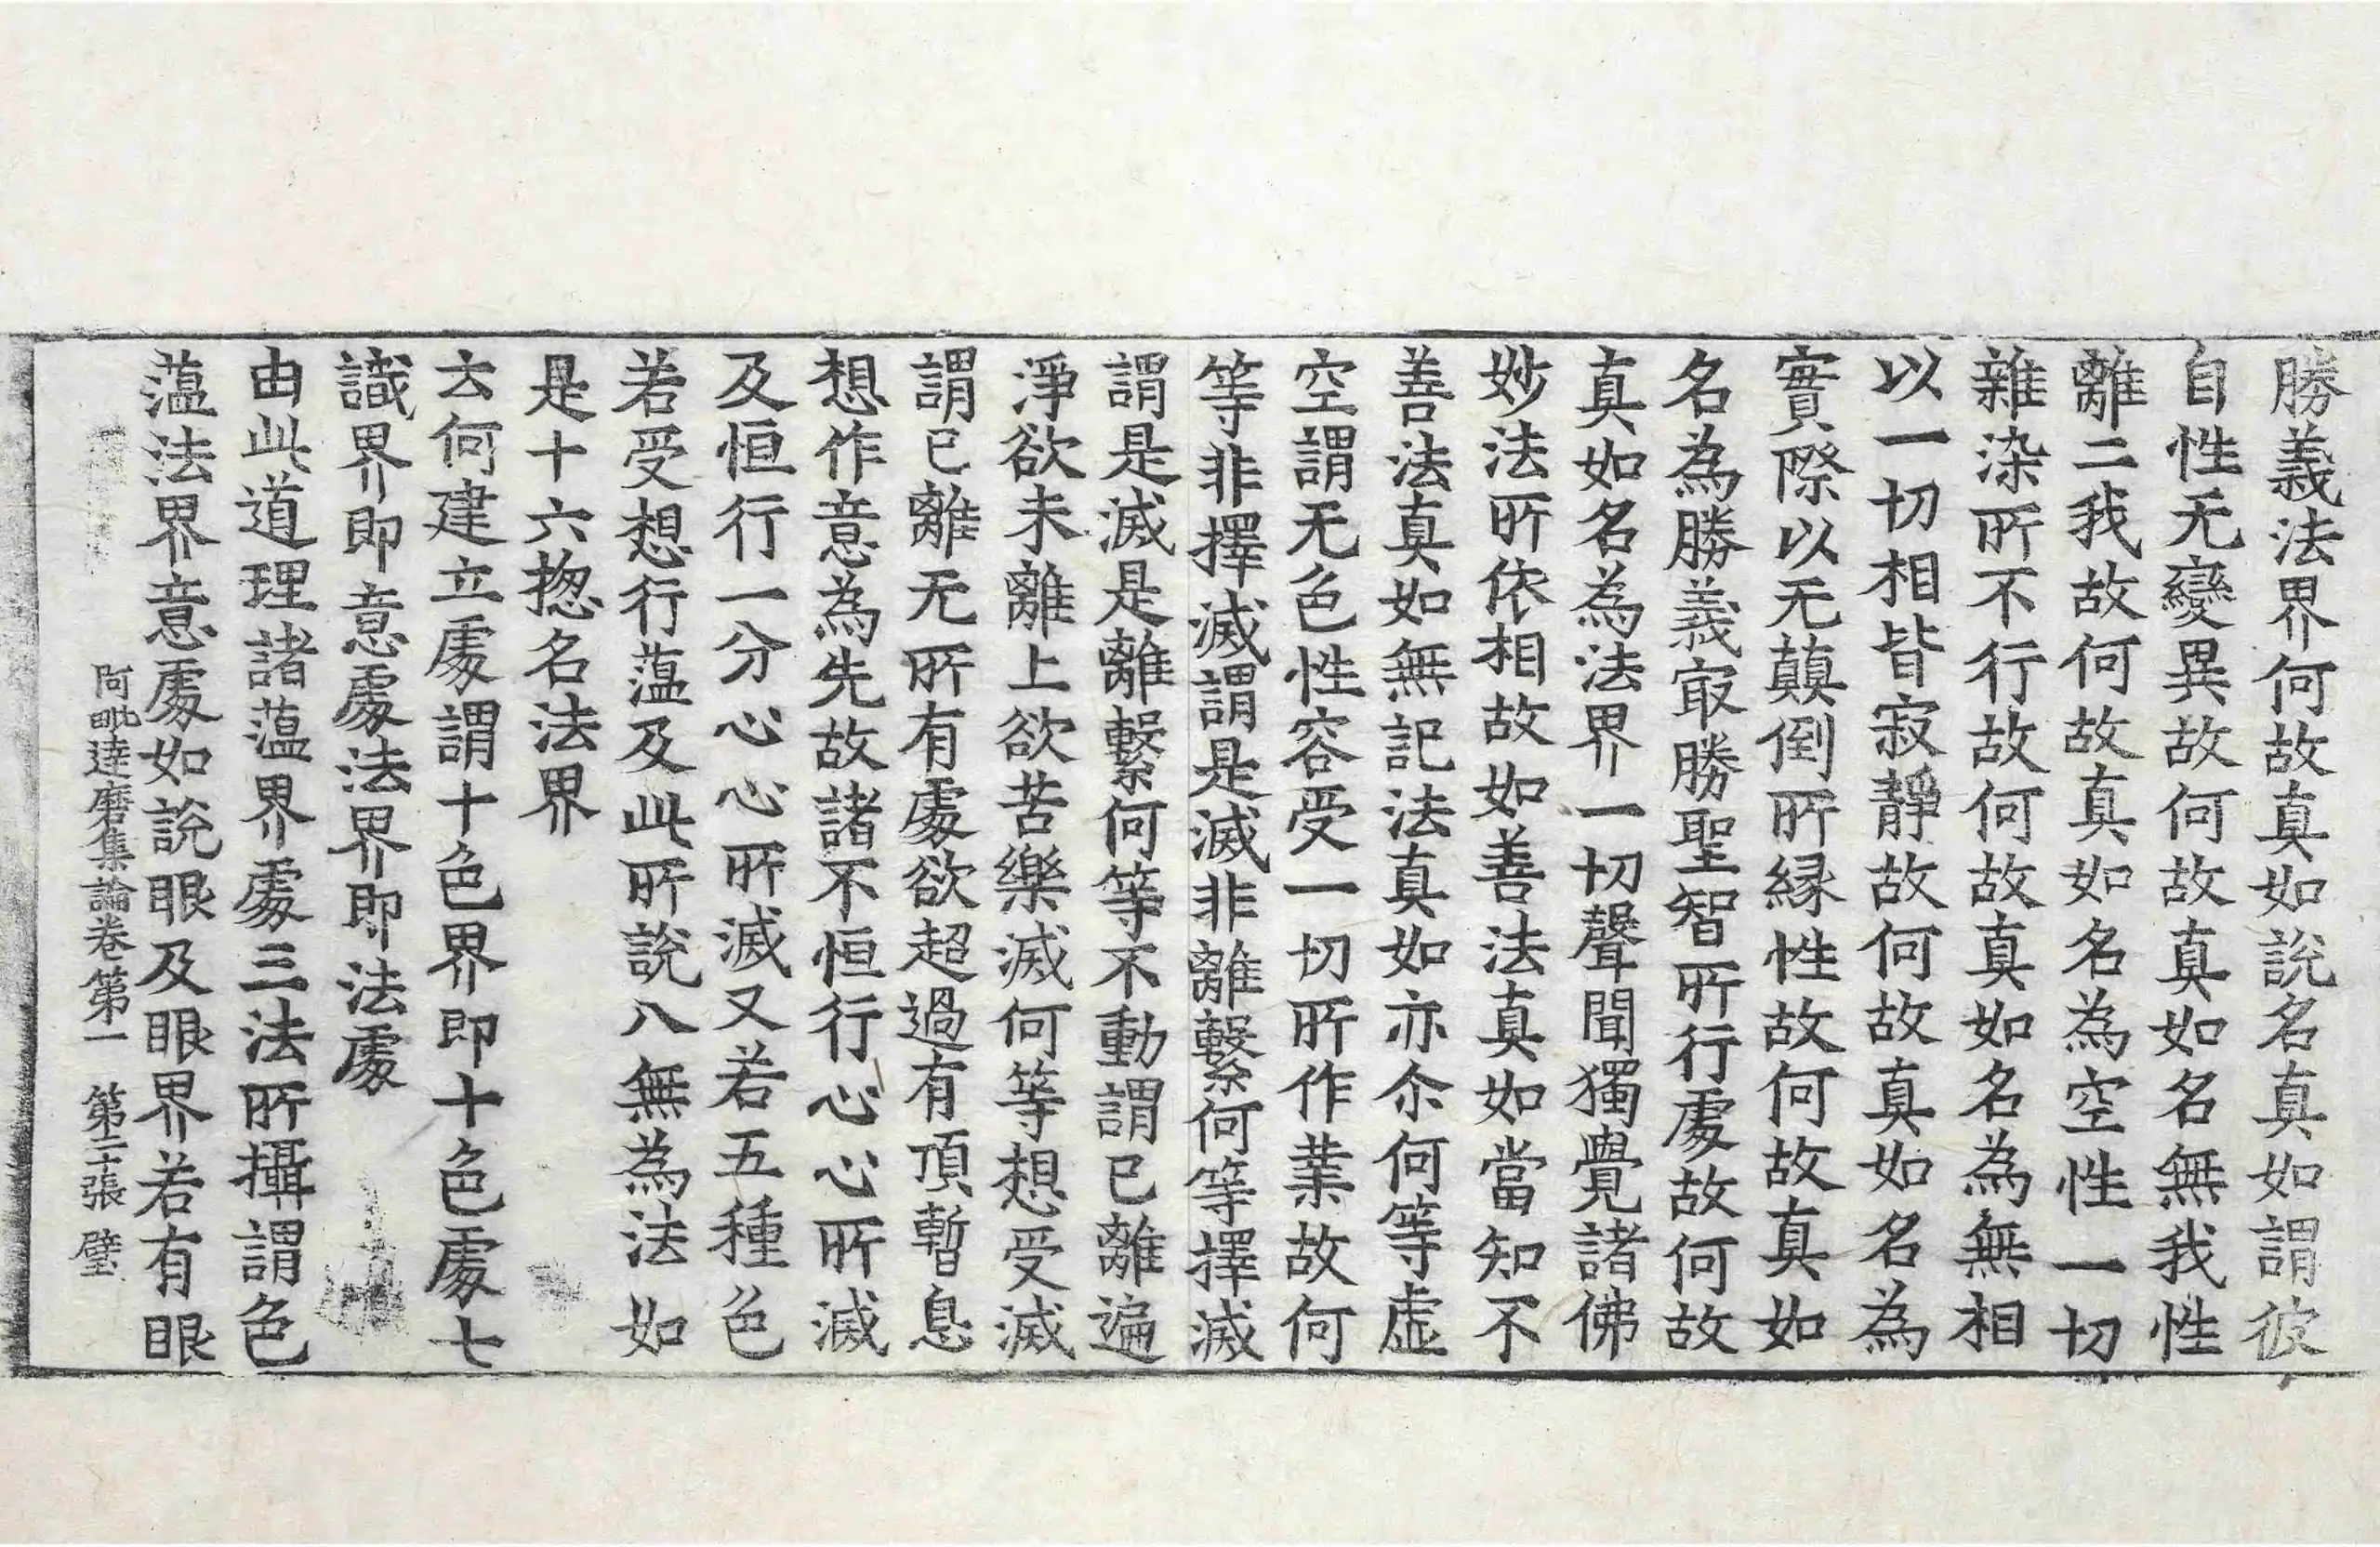 勝義法界何故真如說名真如謂彼
自性无變異故何故真如名無我性
離二我故何故真如名為空性一切
雜染所不行故何故真如名為無相
以一切相皆寂靜故何故真如名為
實際以无顛倒所縁性故何故真如
名為勝義㝡勝聖智所行處故何故
真如名為法界一切聲聞獨覺諸佛
妙法所依相故如善法真如當知不
善法真如無記法真如亦尒何等虛
空謂无色性容受一切所作業故何
等非擇滅謂是滅非離繫何等擇滅
謂是滅是離繫何等不動謂已離遍
淨欲未離上欲苦樂滅何等想受滅
謂已離无所有處欲超過有頂暫息
想作意為先故諸不恒行心心所滅
及恒行一分心心所滅又若五種色
若受想行蘊及此所說八無為法如
是十六揔名法界
云何建立處謂十色界即十色處七
識界即意處法界即法處
由此道理諸蘊界處三法所攝謂色
蘊法界意處如說眼及眼界若有眼
阿毗達磨集論卷第一 第二十張 璧